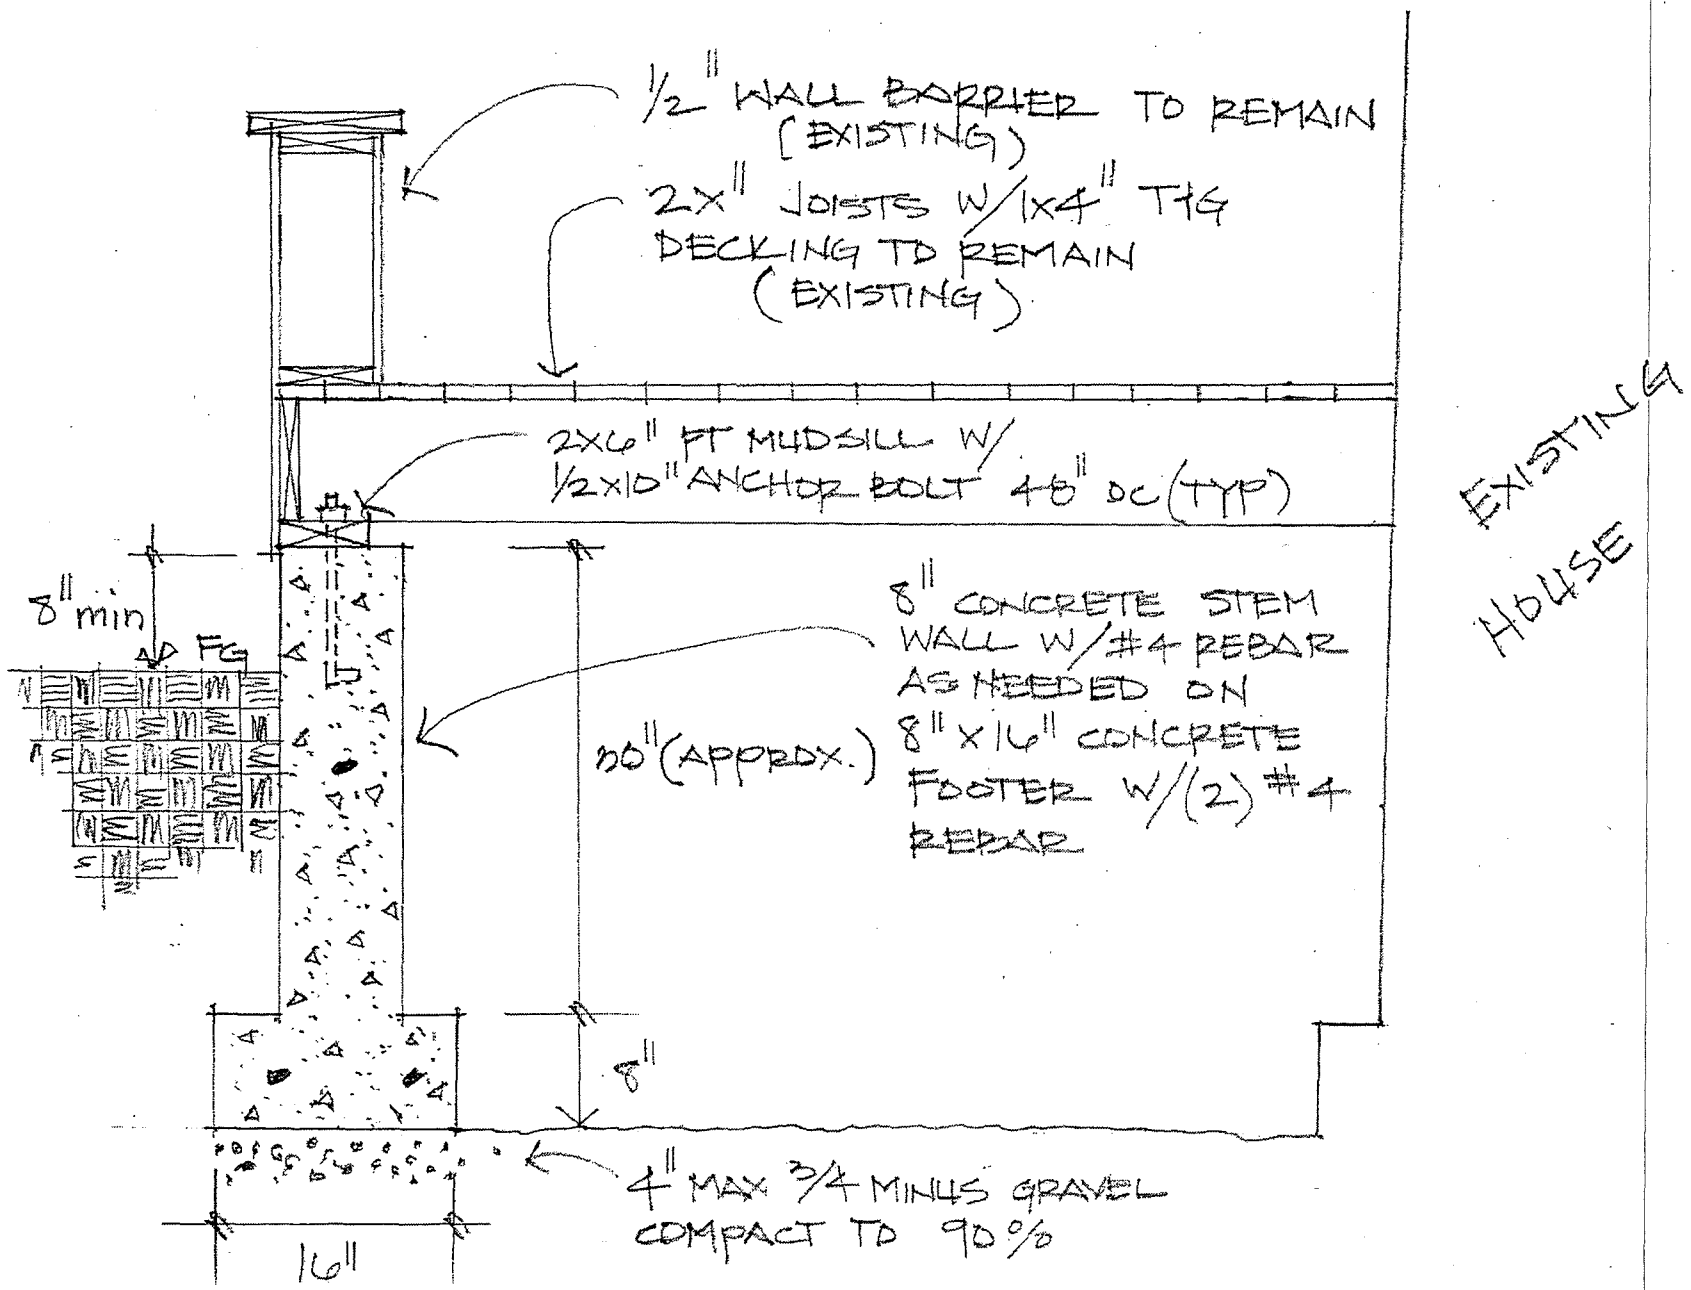 1/2" WALL BARRIER TO REMAIN
(EXISTING)
2X" JOISTS W/1X4" T+G
DECKING TO REMAIN
(EXISTING)
2X6" PT MUDSILL W/
1/2X10" ANCHOR BOLT 48" OC (TYP)
EXISTING
HOUSE
8" min
FG
8" CONCRETE STEM
WALL W/#4 REBAR
AS NEEDED ON
8" X 16" CONCRETE
FOOTER W/(2) #4
REBAR
(APPROX.)
8"
4" MAX 3/4 MINUS GRAVEL
COMPACT TO 90%
16"